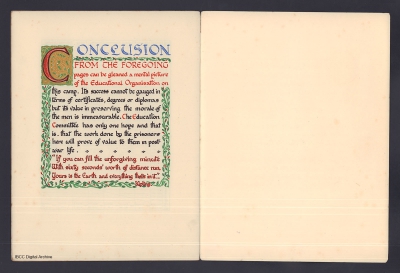 CONCLUSION
FROM THE FOREGOING
pages can be gleaned a mental picture
of the Educational Organisation on
this camp. Its success cannot be gauged in
terms of certificates, degrees or diplomas
but its value in preserving the morale of
the men is immeasurable. The Education
Committee has only one hope and that
is, that the work done by the prisoners
here will prove of value to them in post-
war life.
"If you can fill the unforgiving minute
With sixty seconds' worth of distance run,
Yours is the Earth and everything that's in it"...
Kipling
IBCC Digital Archive